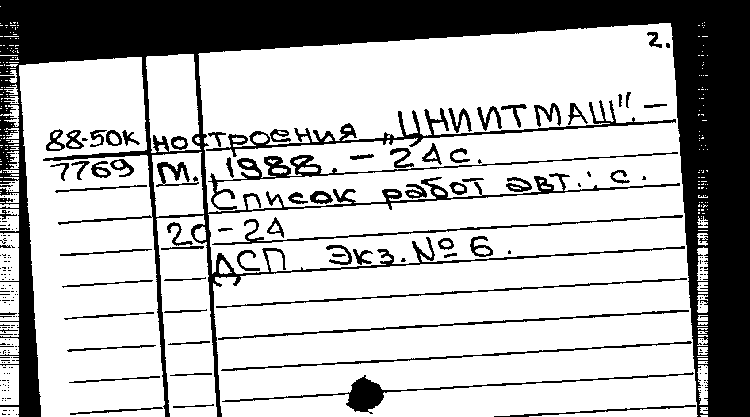 2.
88-50к ностроения „ЦНИИТМАШ". –
7769 М., 1988. – 24 с.
Список работ авт.: с.
20-24
ДСП. Экз. № 6.